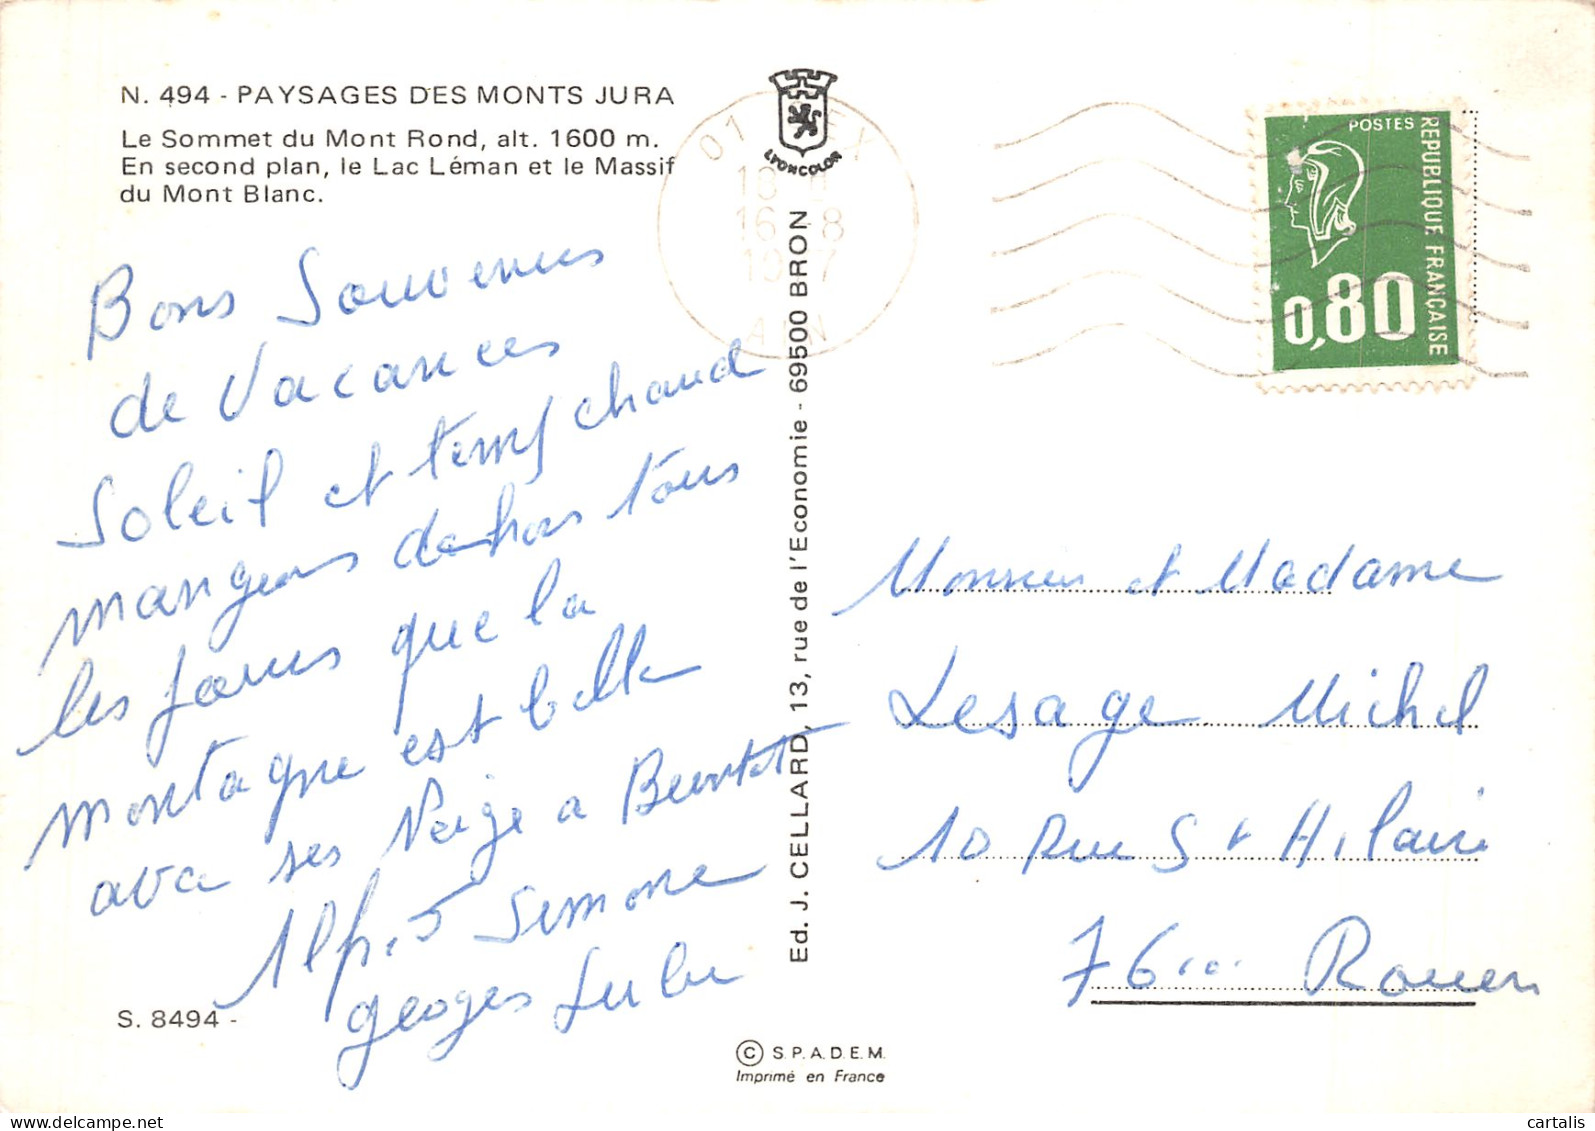 N. 494 - PAYSAGES DES MONTS JURA
Le Sommet du Mont Rond, alt. 1600 m.
En second plan, le Lac Léman et le Massif
du Mont Blanc.
Bons Souvenirs
de Vacances
Soleil et temps chaud
mangeons dehors tous
les jours que la
montagne est belle
ava ses Neige a
Simone
Georges Lulu
S. 8494 -
LYONCOLOR
01 GEX
16 -8
AIN
Ed. J. CELLARD, 13, rue de l'Economie - 69500 BRON
POSTES
REPUBLIQUE FRANÇAISE
0,80
Monsieur et Madame
Lesage Michel
10 Rue St Hilaire
76000 Rouen
© S.P.A.D.E.M.
Imprimé en France
cartalis